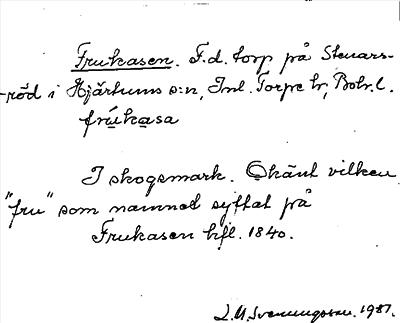 Frukasen. F.d. torp på Stenars-
röd i Hjärtums s:n, Inl. Torpe hr, Boh. l.
frúkasa
I skogsmark. Okänt vilken
"fru" som namnet syftat på
Frukasen hfl. 1840.
L.M. Svenungsson. 1981.